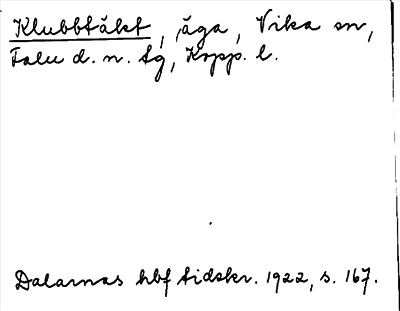 Klubbtäkt, äga, Vika sn,
Falu d. n. tg, Kopp. l.
Dalarnas hbf tidskr. 1922, s. 167.